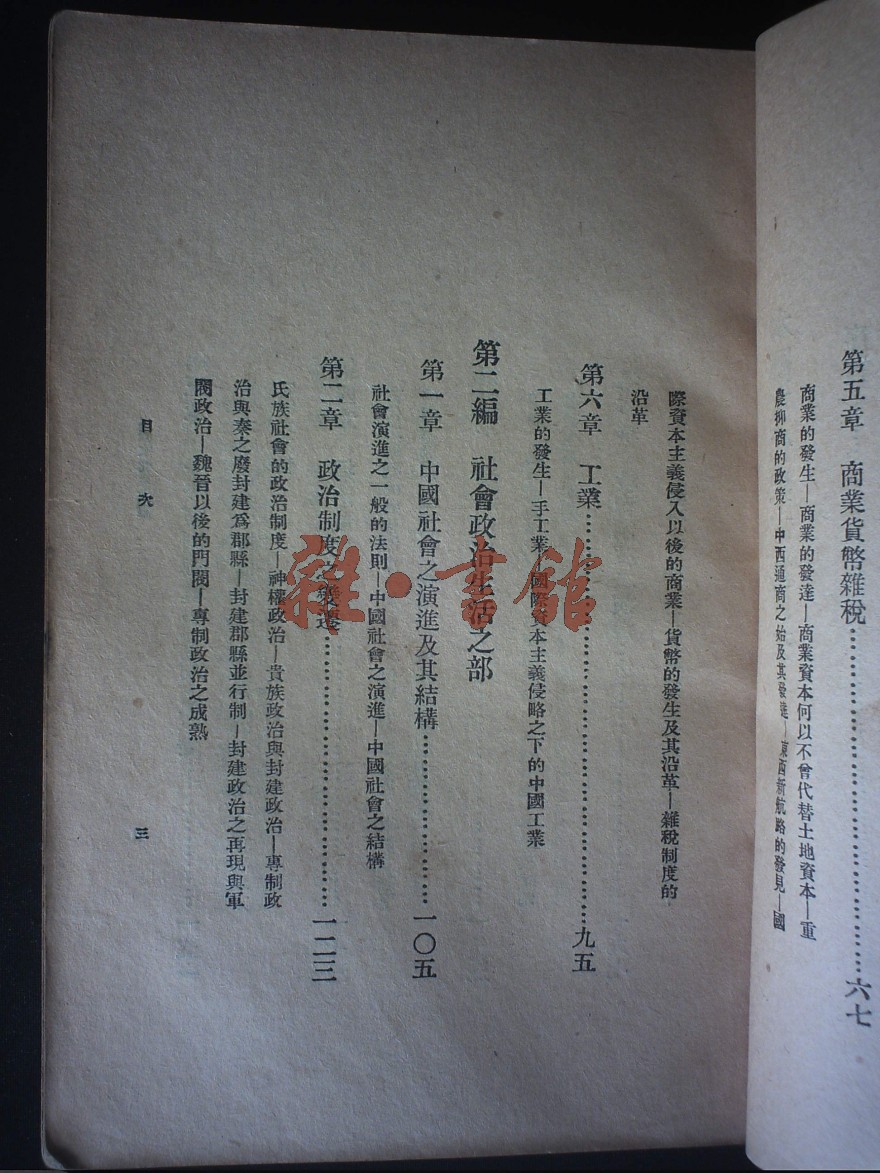 第五章　商業貨幣雜稅……………………六七
商業的發生—商業的發達—商業資本何以不曾代替土地資本—重
農抑商的政策—中西通商之始及其發達—東西新航路的發見—國
際資本主義侵入以後的商業—貨幣的發生及其沿革—雜稅制度的
沿革
第六章　工業……………………九五
工業的發生—手工業—國際資本主義侵略之下的中國工業
第二編　社會政治生活之部
第一章　中國社會之演進及其結構……………………一〇五
社會演進之一般的法則—中國社會之演進—中國社會之結構
第二章　政治制度之變遷……………………一二三
氏族社會的政治制度—神權政治—貴族政治與封建政治—專制政
治與秦之廢封建爲郡縣—封建郡縣並行制—封建政治之再現與軍
閥政治—魏晉以後的門閥—專制政治之成熟
目次
三
雜·書館